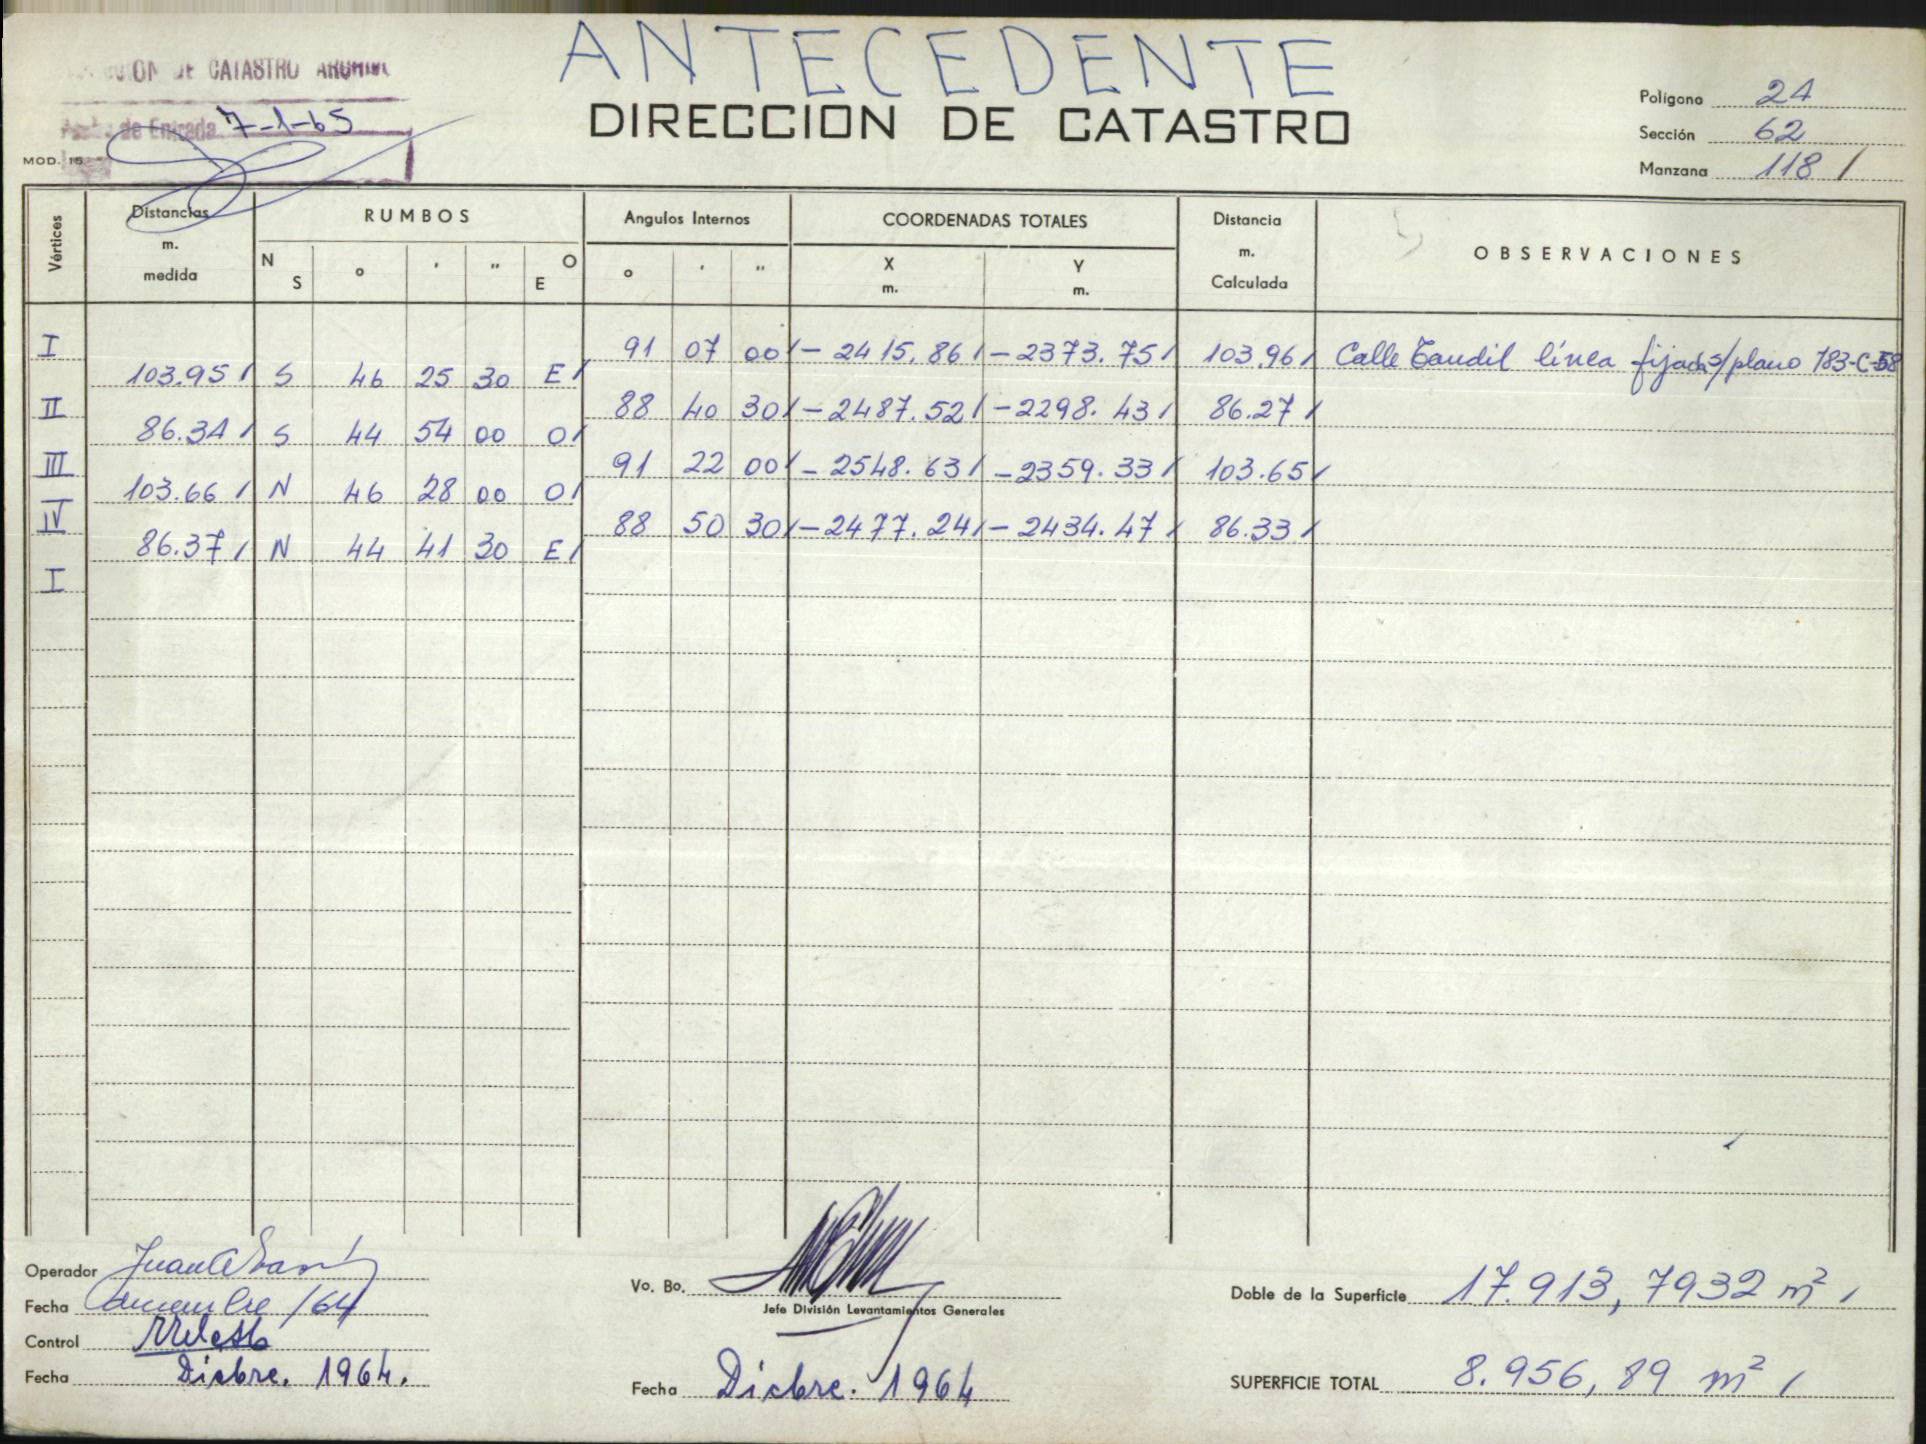 ANTECEDENTE
DE CATASTRO
DIRECCION DE CATASTRO
de Entrada 7-1-65
MOD. 15
Polígono 24
Sección 62
Manzana 118 /
Vértices
Distancias m. medida
RUMBOS
N S o ' " O E
Angulos Internos
o ' "
COORDENADAS TOTALES
X m. Y m.
Distancia m. Calculada
OBSERVACIONES
I 91 07 00 / - 2415.86 / - 2373.75 / 103.96 / Calle Tandil línea fijada s/plano 783-C-58
103.95 / S 46 25 30 E /
II 88 40 30 / - 2487.52 / - 2298.43 / 86.27 /
86.34 / S 44 54 00 O /
III 91 22 00 / - 2548.63 / - 2359.33 / 103.65 /
103.66 / N 46 28 00 O /
IV 88 50 30 / - 2477.24 / - 2434.47 / 86.33 /
86.37 / N 44 41 30 E /
I
Operador
Fecha /64
Control
Fecha Dicbre. 1964.
Vo. Bo.
Jefe División Levantamientos Generales
Fecha Dicbre. 1964
Doble de la Superficie 17.913,7932 m² /
SUPERFICIE TOTAL 8.956,89 m² /